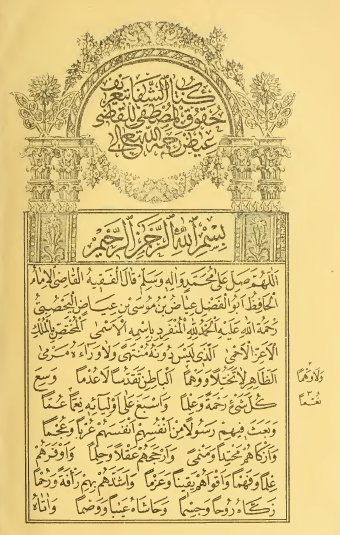 كتاب الشفا بتعريف
حقوق المصطفى للقاضى
عياض رحمه الله تعالى
بسم الله الرحمن الرحيم
اللهم صل على محمد واله وسلم قال الفقيه القاضى الامام
الحافظ ابو الفضل عياض بن موسى بن عياض اليحصبى
رحمة الله عليه الحمد لله المنفرد باسمه الاسمى المختص بالملك
الاعز الاحمى الذى ليس دونه منتهى ولا وراءه مرمى
الظاهر لا تخيلا ووهما الباطن تقدسا لا عدما وسع
كل شىء رحمة وعلما واسبغ على اوليائه نعما عما
وبعث فيهم رسولا من انفسهم انفسهم عربا وعجما
وازكاهم محتدا ومنمى وارجحهم عقلا وحلما واوفرهم
علما وفهما واقواهم يقينا وعزما واشدهم بهم رافة ورحما
زكاه روحا وجسما وحاشاه عيبا ووصما واتاه
ولا وهما
نعما